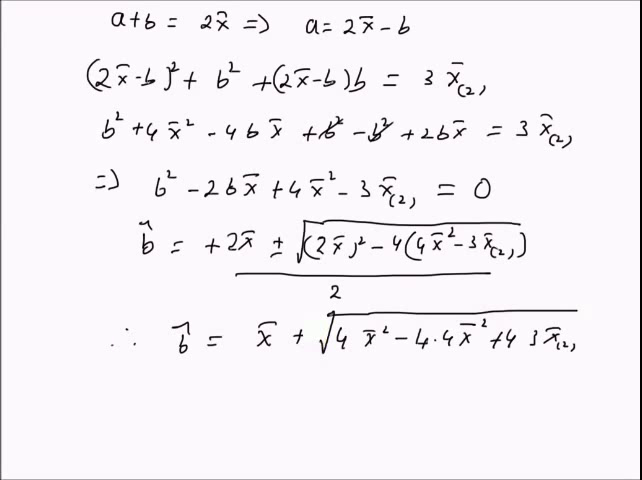 a+b = 2x̄ => a = 2x̄ - b
(2x̄-b)² + b² + (2x̄-b)b = 3 x̄₍₂₎
b² + 4x̄² - 4bx̄ + b² - b² + 2bx̄ = 3 x̄₍₂₎
=> b² - 2bx̄ + 4x̄² - 3x̄₍₂₎ = 0
b̂ = +2x̄ ± √((2x̄)² - 4(4x̄² - 3x̄₍₂₎))
2
∴ b̂ = x̄ + √(4 x̄² - 4·4x̄² + 4 3x̄₍₂₎)